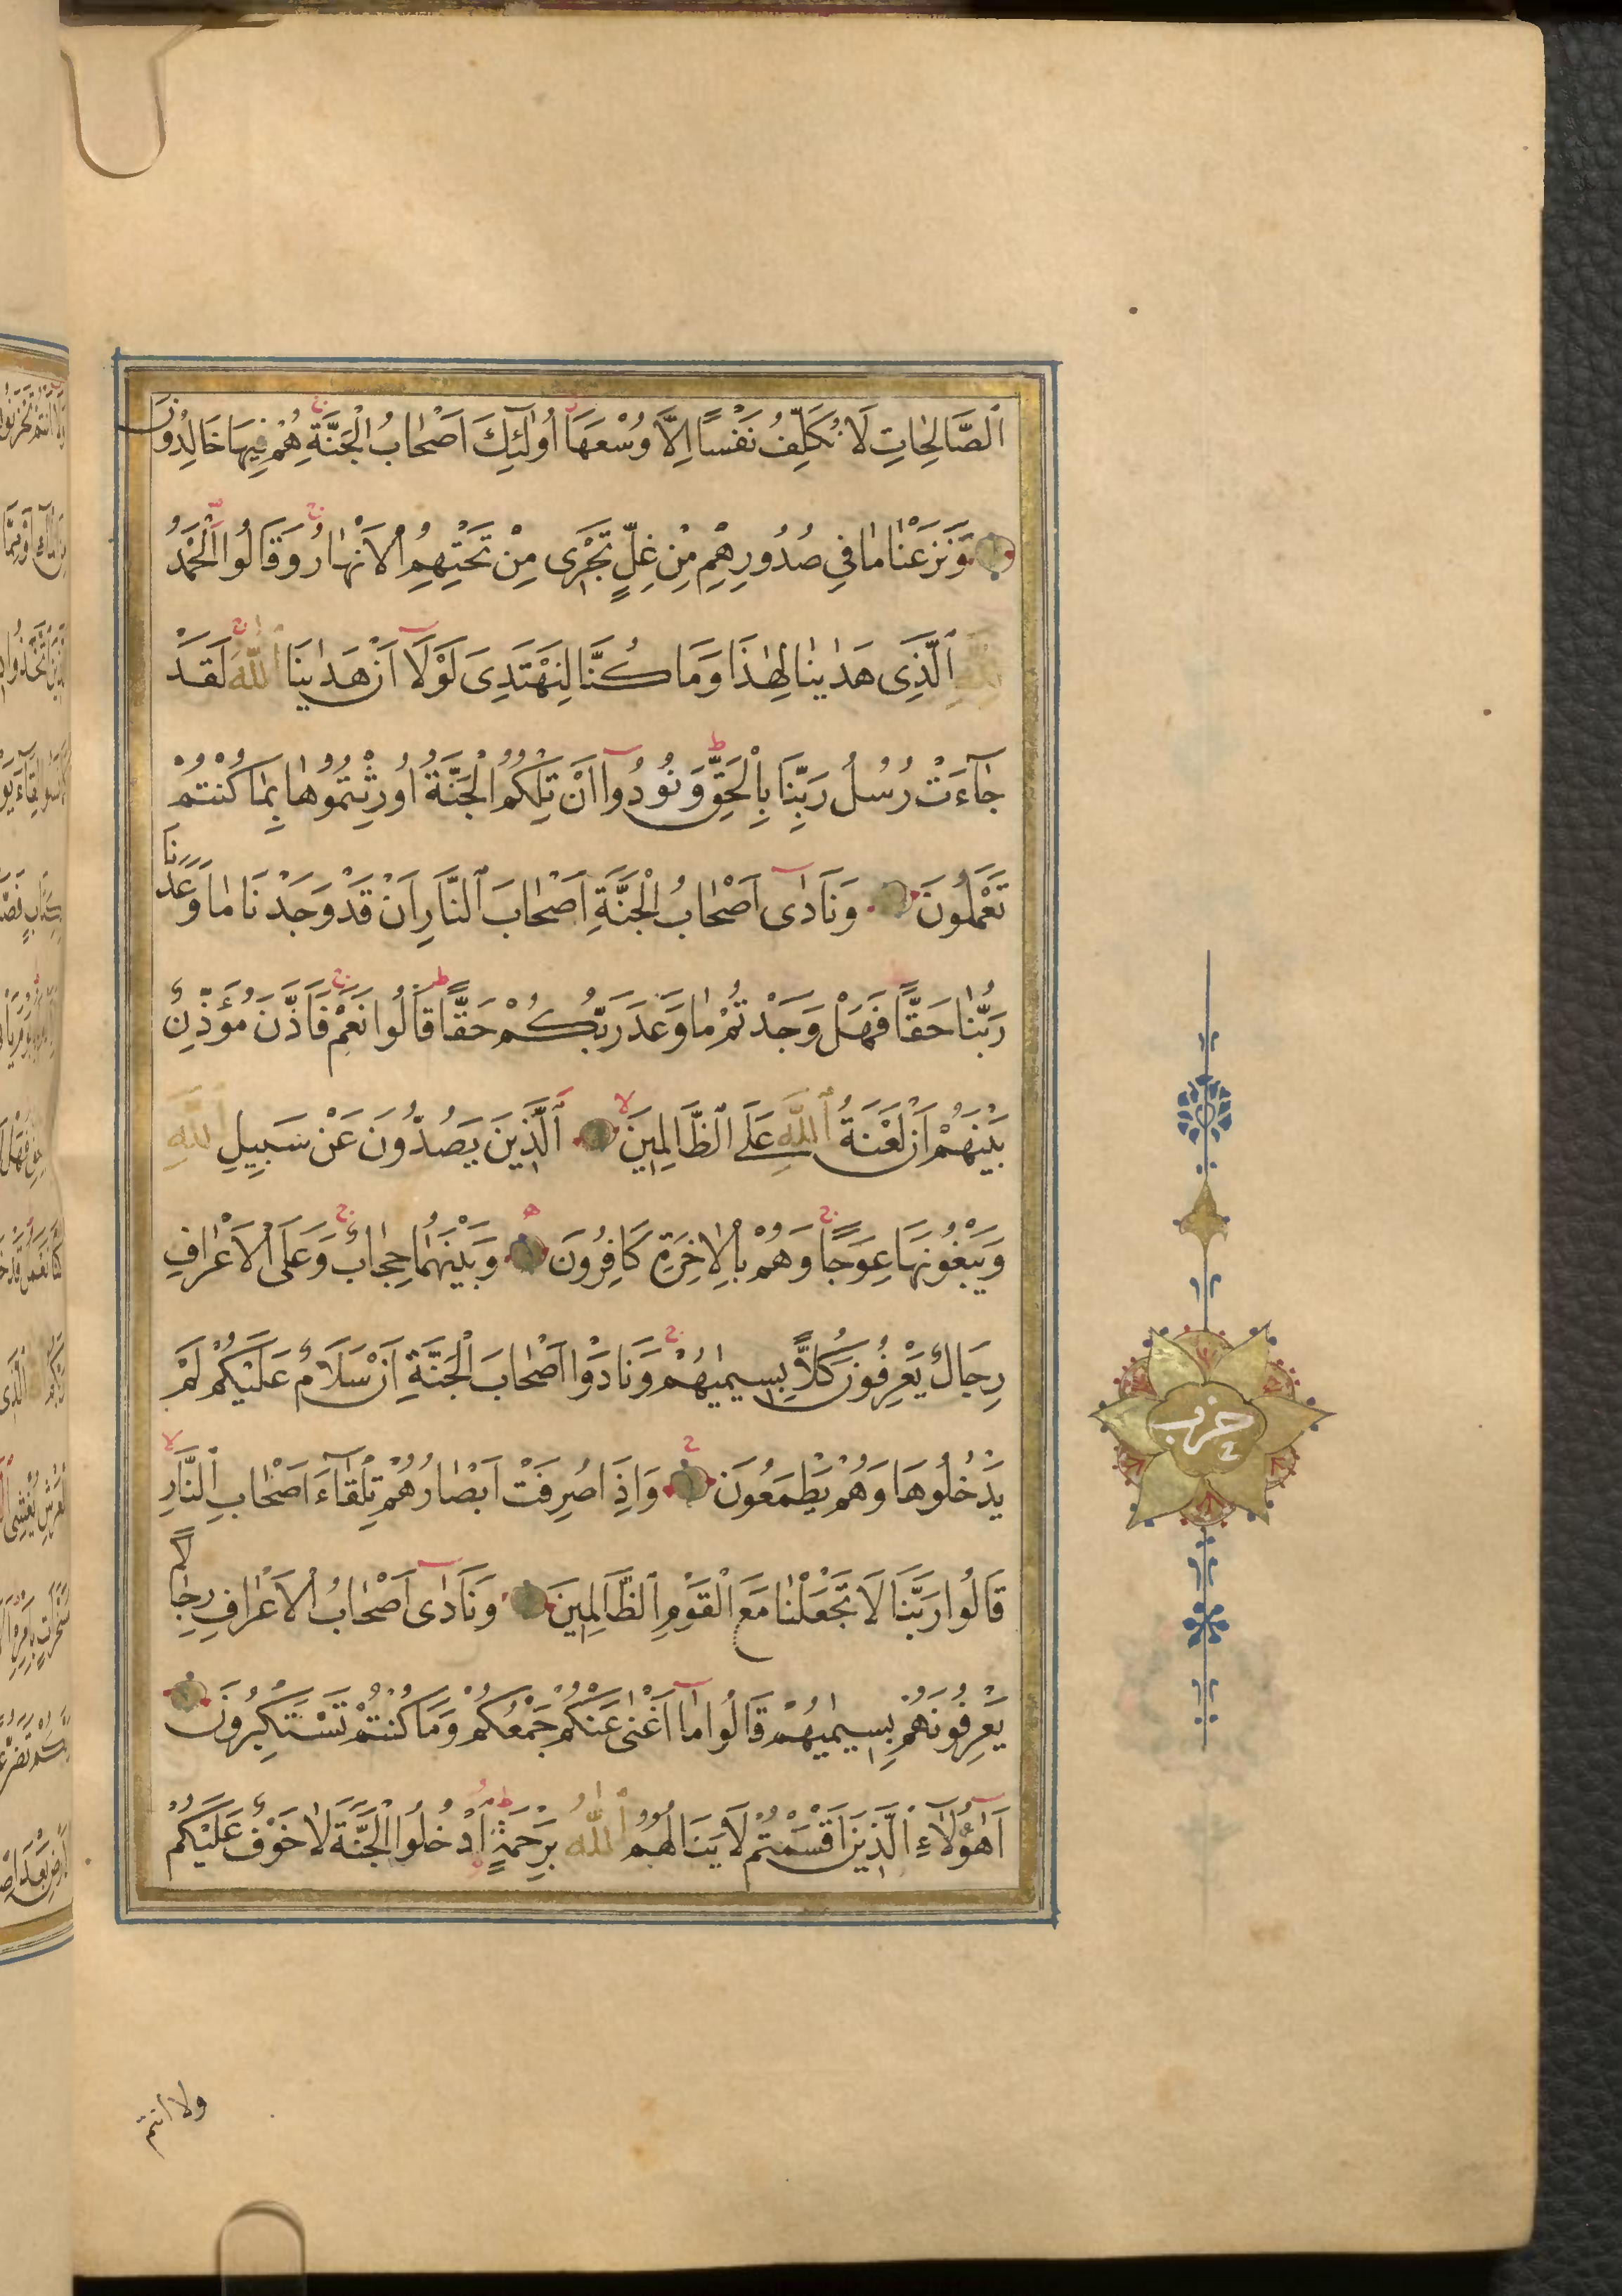 اَلصَّالِحَاتِ لَا نُكَلِّفُ نَفْسًا اِلَّا وُسْعَهَا اُولٰٓئِكَ اَصْحَابُ الْجَنَّةِ هُمْ فِيهَا خَالِدُونَ
وَنَزَعْنَا مَا فِي صُدُورِهِمْ مِنْ غِلٍّ تَجْرِي مِنْ تَحْتِهِمُ الْاَنْهَارُ وَقَالُوا الْحَمْدُ
لِلّٰهِ الَّذِي هَدٰينَا لِهٰذَا وَمَا كُنَّا لِنَهْتَدِيَ لَوْلَا اَنْ هَدٰينَا اللّٰهُ لَقَدْ
جَآءَتْ رُسُلُ رَبِّنَا بِالْحَقِّ وَنُودُوا اَنْ تِلْكُمُ الْجَنَّةُ اُورِثْتُمُوهَا بِمَا كُنْتُمْ
تَعْمَلُونَ وَنَادٰى اَصْحَابُ الْجَنَّةِ اَصْحَابَ النَّارِ اَنْ قَدْ وَجَدْنَا مَا وَعَدَنَا
رَبُّنَا حَقًّا فَهَلْ وَجَدْتُمْ مَا وَعَدَ رَبُّكُمْ حَقًّا قَالُوا نَعَمْ فَاَذَّنَ مُؤَذِّنٌ
بَيْنَهُمْ اَنْ لَعْنَةُ اللّٰهِ عَلَى الظَّالِمِينَ اَلَّذِينَ يَصُدُّونَ عَنْ سَبِيلِ اللّٰهِ
وَيَبْغُونَهَا عِوَجًا وَهُمْ بِالْاٰخِرَةِ كَافِرُونَ وَبَيْنَهُمَا حِجَابٌ وَعَلَى الْاَعْرَافِ
رِجَالٌ يَعْرِفُونَ كُلًّا بِسِيمٰيهُمْ وَنَادَوْا اَصْحَابَ الْجَنَّةِ اَنْ سَلَامٌ عَلَيْكُمْ لَمْ
يَدْخُلُوهَا وَهُمْ يَطْمَعُونَ وَاِذَا صُرِفَتْ اَبْصَارُهُمْ تِلْقَآءَ اَصْحَابِ النَّارِ
قَالُوا رَبَّنَا لَا تَجْعَلْنَا مَعَ الْقَوْمِ الظَّالِمِينَ وَنَادٰى اَصْحَابُ الْاَعْرَافِ رِجَالًا
يَعْرِفُونَهُمْ بِسِيمٰيهُمْ قَالُوا مَا اَغْنٰى عَنْكُمْ جَمْعُكُمْ وَمَا كُنْتُمْ تَسْتَكْبِرُونَ
اَهٰٓؤُلَآءِ الَّذِينَ اَقْسَمْتُمْ لَا يَنَالُهُمُ اللّٰهُ بِرَحْمَةٍ اُدْخُلُوا الْجَنَّةَ لَا خَوْفٌ عَلَيْكُمْ
ولا انتم
حزب